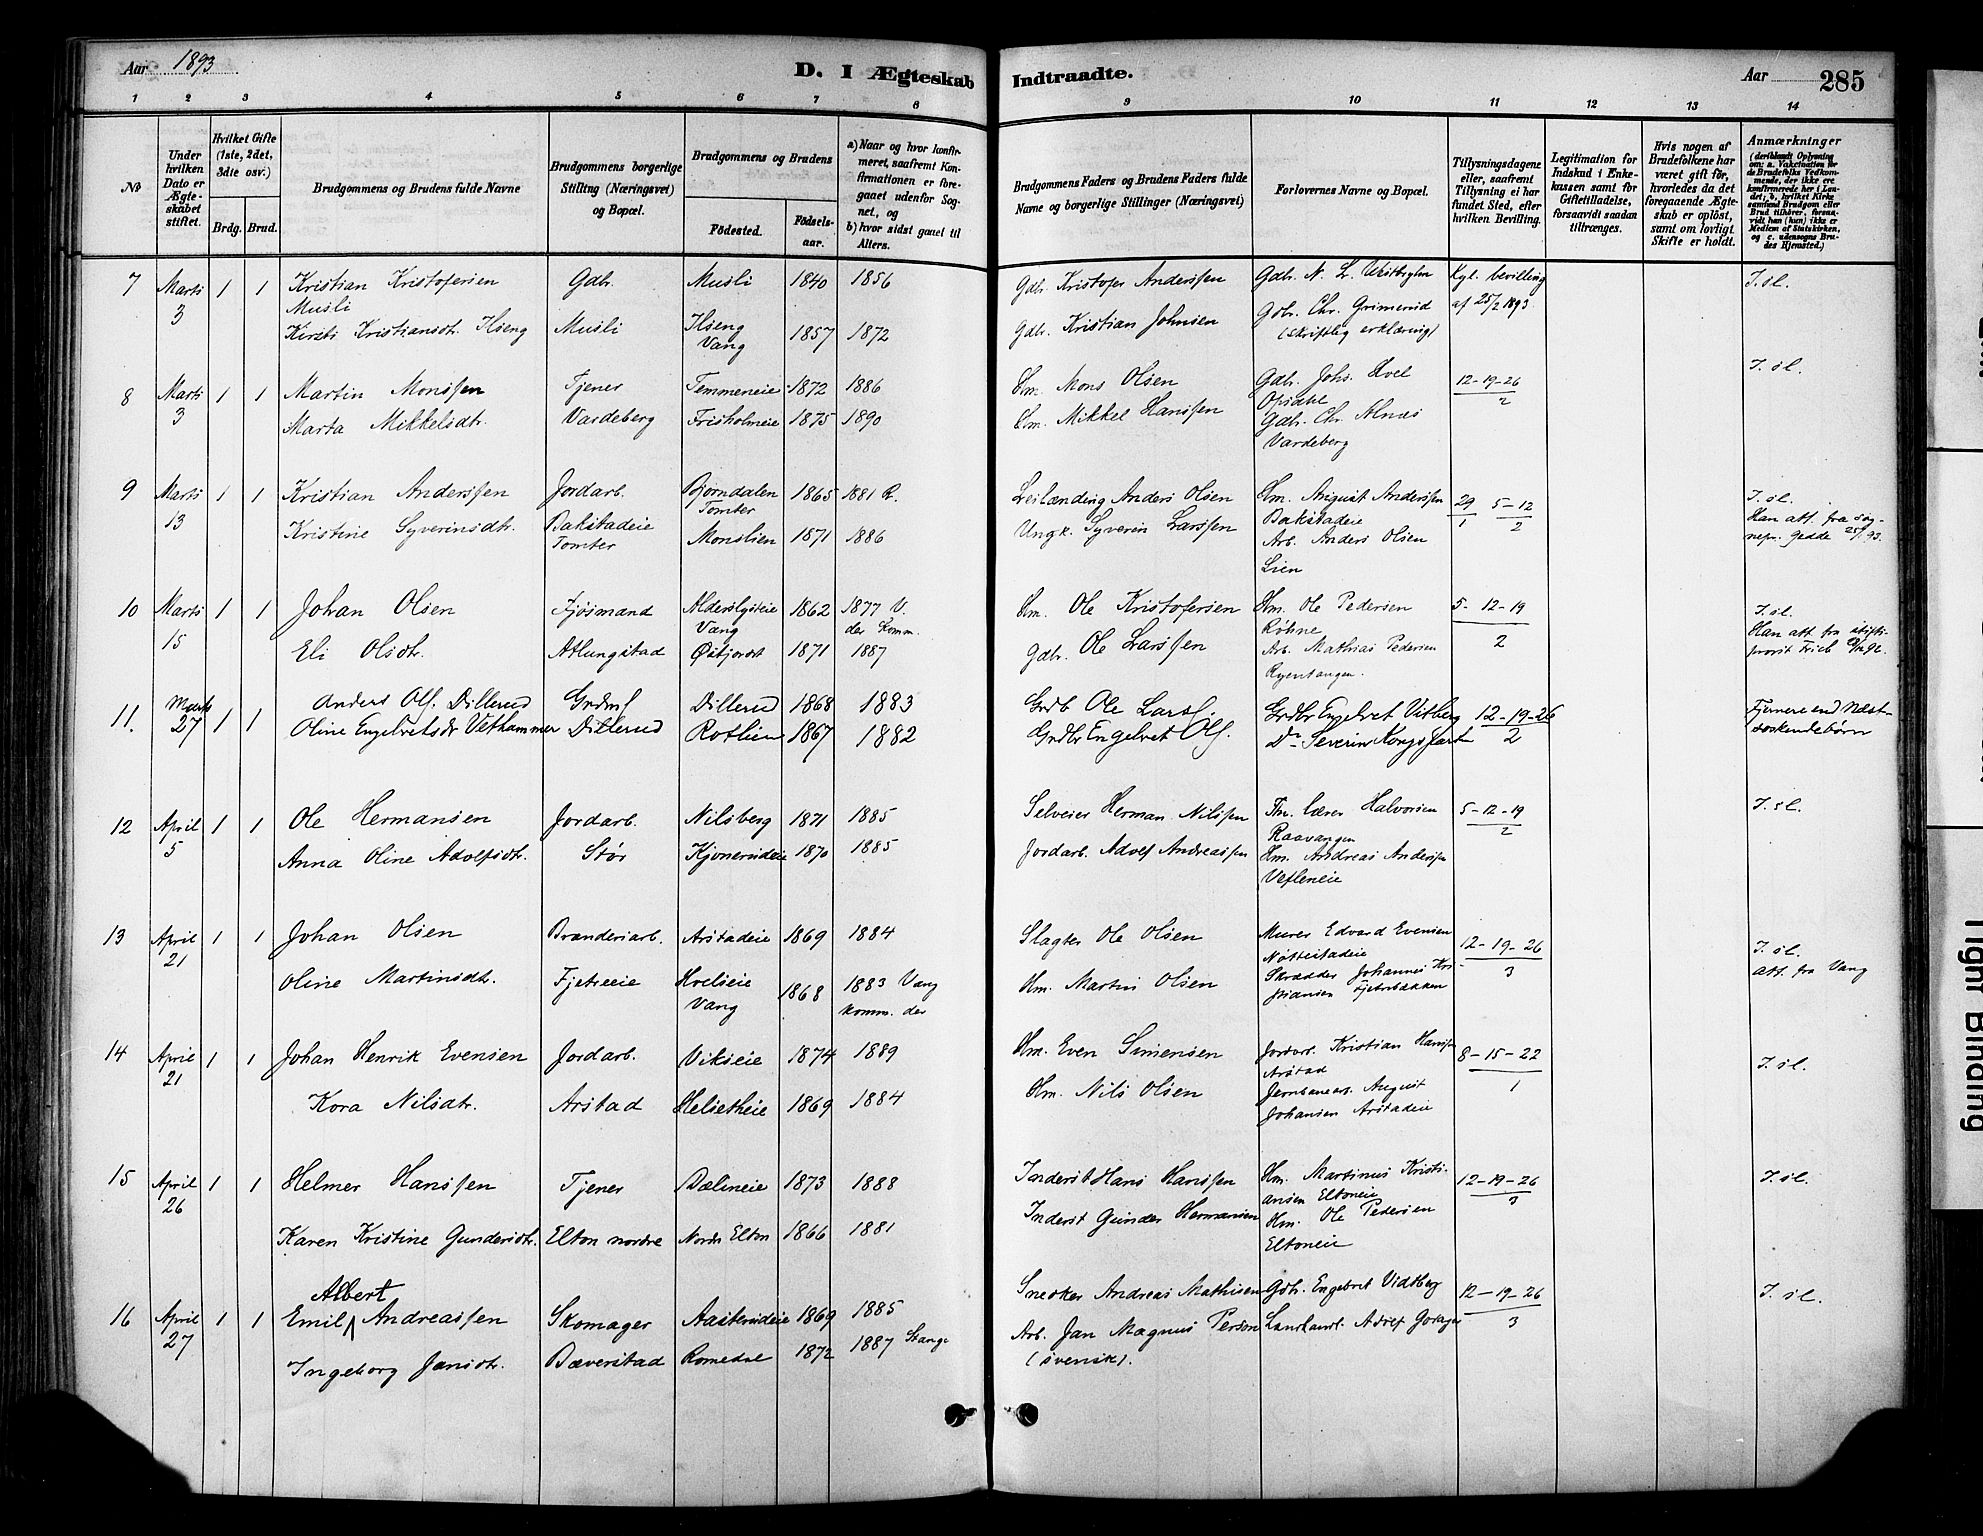 Aar 1893
D. I Ægteskab Indtraadte.
Aar 285
1 2 3 4 5 6 7 8 9 10 11 12 13 14
No
Under hvilken Dato er Ægteskabet stiftet.
Hvilket Gifte (1ste, 2det, 3die osv.)
Brdg. Brud.
Brudgommens og Brudens fulde Navne
Brudgommens borgerlige Stilling (Næringsvei) og Bopæl.
Brudgommens og Brudens
Födested.
Födselsaar.
a) Naar og hvor konfirmeret, saafremt Konfirmationen er foregaaet udenfor Sognet, og
b) hvor sidst gaaet til Alters.
Brudgommens Faders og Brudens Faders fulde Navne og borgerlige Stillinger (Næringsvei)
Forlovernes Navne og Bopæl.
Tillysningsdagene eller, saafremt Tillysning ei har fundet Sted, efter hvilken Bevilling.
Legitimation for Indskud i Enkekassen samt for Giftetilladelse, forsaavidt saadan tiltrænges.
Hvis nogen af Brudefolkene har været gift för, hvorledes da det foregaaende Ægteskab er oplöst, samt om lovligt Skifte er holdt.
Anmærkninger
(deriblandt Oplysning om: a. Vaksination for de Brudefolks Vedkommende, der ikke ere konfirmerede her i Landet, b. hvilket Kirkesamfund Brudgom eller Brud tilhörer, forsaavidt han (hun) ikke er Medlem af Statskirken, og c. udensogns Brudes Hjemsted.)
7 Marts 1 1 Kristian Kristofersen Gdbr. Musli 1840 1856 Gdbr. Kristofer Anderssen Gdbr. N. L. Kgl. bevilling I. sl.
3 Musli Gdbr. Chr. Grimerud af 25/2 1893
Kirsti Kristiansdtr. Ilseng Musli Ilseng 1857 1872 Gdbr. Kristian Johnsen (skriftlig erklæring)
Vang
8 Marts 1 1 Martin Monssen Tjener Temmeneie 1872 1886 Hm. Mons Olsen Gdbr. Johs. Hvel 12-19-26 I. sl.
3 Opsahl 2
Marta Mikkelsdtr. Vardeberg Frisholmeie 1875 1890 Hm. Mikkel Hanssen Gdbr. Chr. Alnæs
Vardeberg
9 Marts 1 1 Kristian Anderssen Jordarb. Bjørndalen 1865 1881 R. Leilænding Anders Olsen Hm. August Anderssen 29 5-12 I. sl.
13 Tomter Bakstadeie 1 2 Han att. fra sog-
Kristine Syverinsdtr. Bakstadeie Monslien 1871 1886 Ungk. Syverin Larssen Arb. Anders Olsen nepr. Gedde 25/1 93.
Tomter Lien
10 Marts 1 1 Johan Olsen Fjøsmand Alderslysteie 1862 1877 V. Hm. Ole Kristofersen Hm. Ole Pedersen 5-12-19 I. sl.
15 Vang der komm. Røhne 2 Han att. fra stifts-
Eli Olsdtr. Atlungstad 1871 1887 Gdbr. Ole Larssen Arb. Mathias Pedersen provst
Ryentangen.
11. Marts 1 1 Anders Ols. Dillerud Dillerud 1868 1883 Grdb Ole Lars. Grdbr Engelvet Vitberg 12-19-26 Fjernere end Næst-
27 Oline Engebretsdr Vethammer Dillerud Rotlien 1867 1882 Grdbr Engelvet Ols. Do Severin 2 søskendebørn
12 April 1 1 Ole Hermansen Jordarb. Nilsberg 1871 1885 Selveier Herman Nilssen Fhv. lærer Halvorsen 5-12-19 I. sl.
5 Raavangen 2
Anna Oline Adolfsdtr. Stør Kjonerudeie 1870 1885 Jordarb. Adolf Andreassen Hm. Andreas Anderssen
13 April 1 1 Johan Olsen Brænderiarb. Arstadeie 1869 1884 Slagter Ole Olsen Murer Edvard Evensen 12-19-26 I. sl.
21 Nøttestadeie 3 att. fra Vang
Oline Martinsdtr. Fjetreeie Hvelseie 1868 1883 Vang Hm. Martin Olsen Skrædder Johannes Kri-
Vang komm. der stiansen Fjetrebakken
14 April 1 1 Johan Henrik Evensen Jordarb. Vikseie 1874 1889 Hm. Even Simensen Jordarb. Kristian Hanssen 8-15-22 I. sl.
21 Arstad 1
Kora Nilsdtr. Arstad Helsetheie 1869 1884 Hm. Nils Olsen Jernbanearb. August
Johansen Arstadeie
15 April 1 1 Helmer Hanssen Tjener Dælineie 1873 1888 Inderst Hans Hanssen Hm. Martinus Kristi- 12-19-26 I. sl.
26 ansen Eltoneie 3
Karen Kristine Gundersdtr. Elton nordre Nordr. Elton 1866 1881 Inderst Gunder Hermansen Hm. Ole Pedersen
Eltoneie
Albert
16 April 1 1 Emil Andreassen Skomager Aasterudeie 1869 1885 Snedker Andreas Mathisen Gdbr. Engebret Vidtberg 12-19-26 I. sl.
27 3
Ingeborg Jansdtr. Bæverstad Romedal 1872 1887 Stange Arb. Jan Magnus Person Landhandl. Adolf
(svensk).
Tight Binding